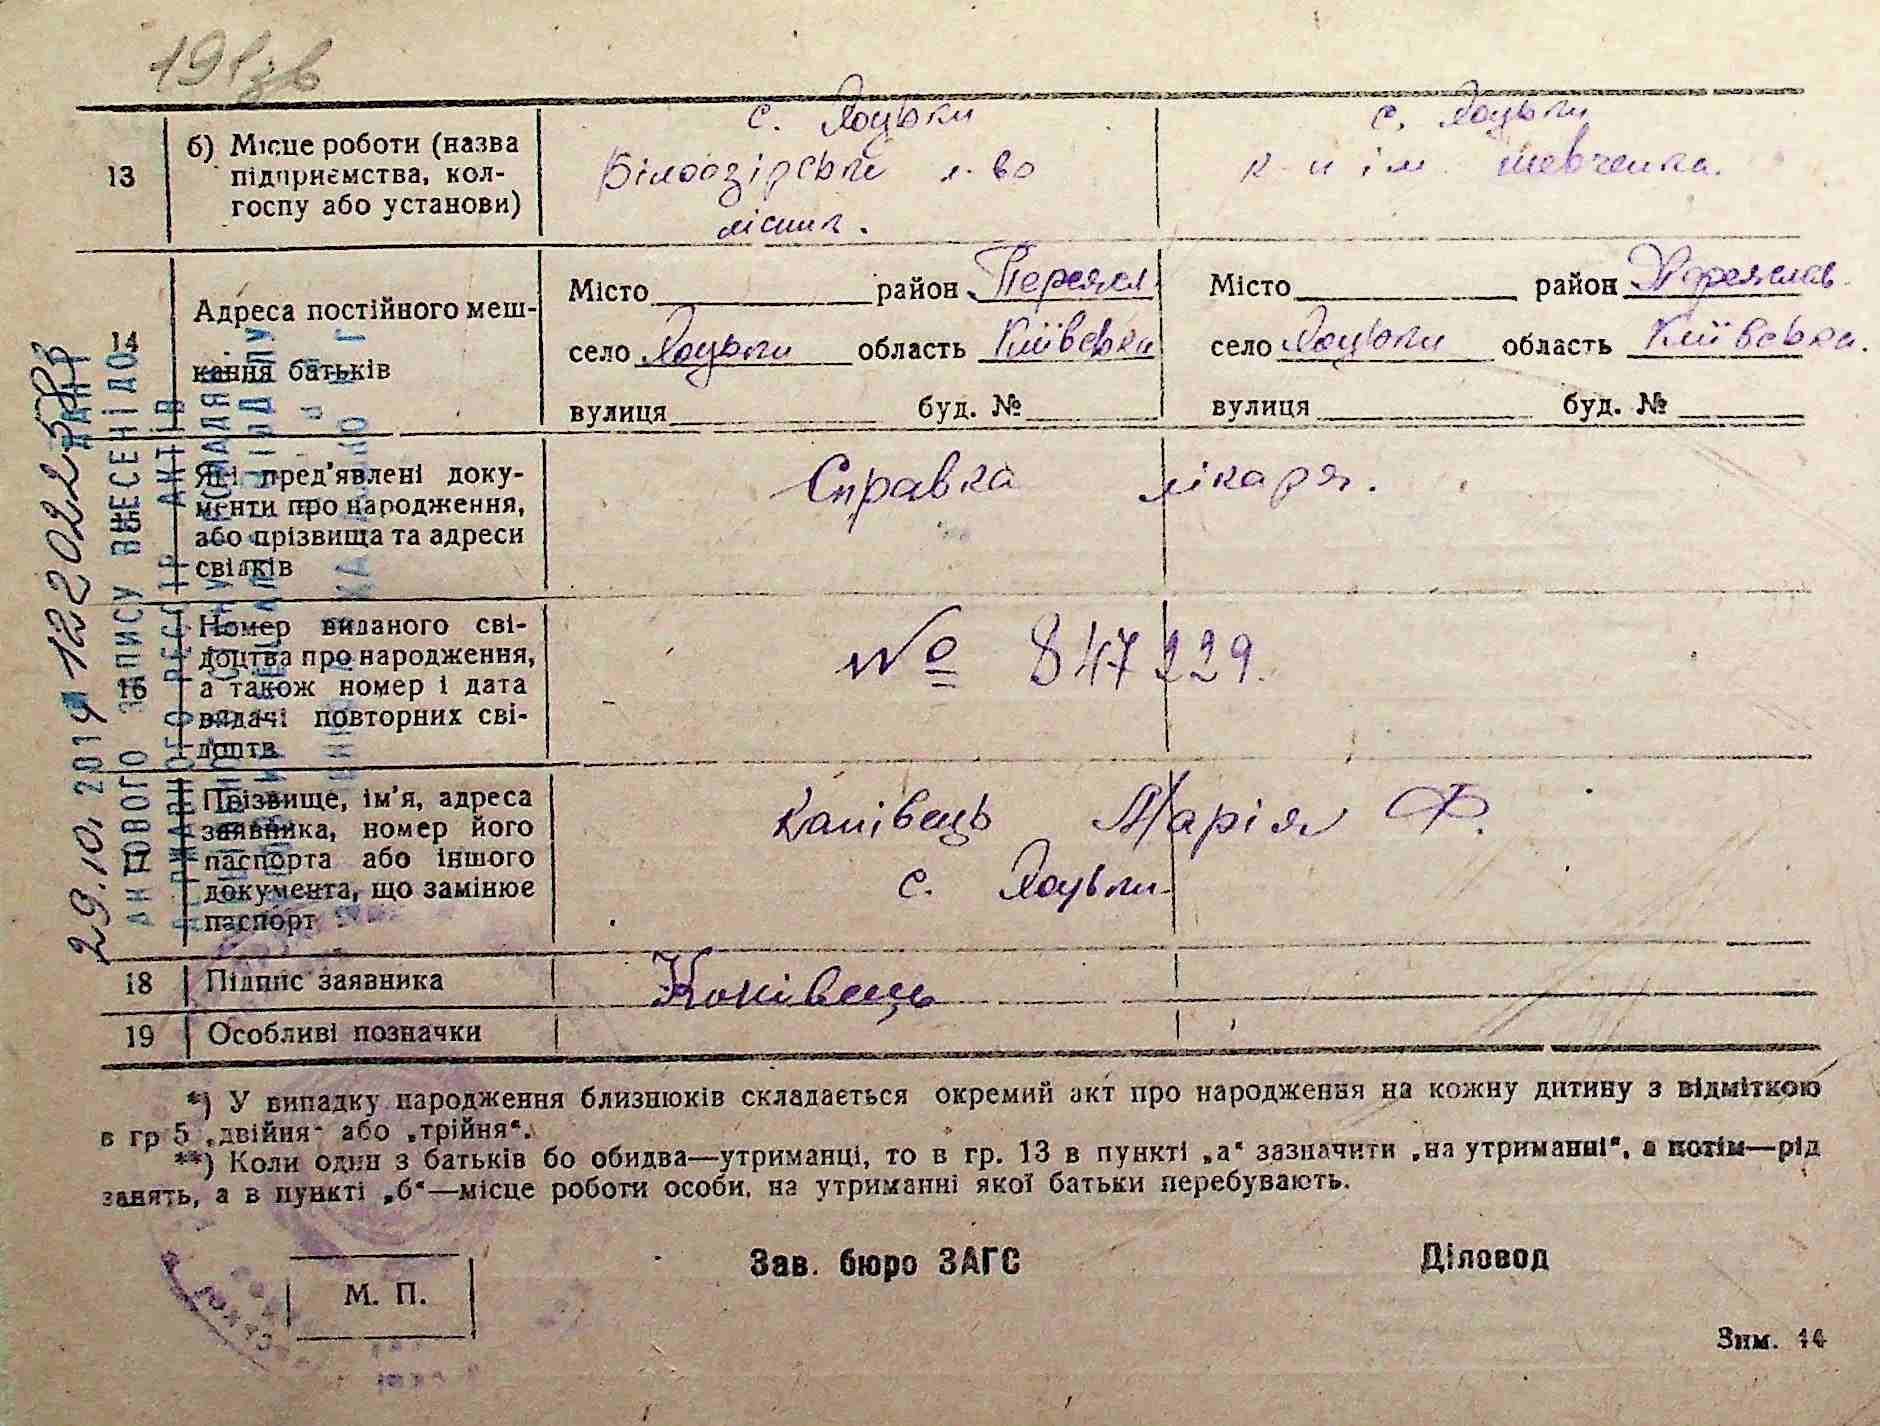 19 зв
13 б) Місце роботи (назва підприємства, колгоспу або установи)
с. Яцьки
Білоозірське л-во
лісник.
с. Яцьки
к-п ім. Шевченка.
14 Адреса постійного мешкання батьків
Місто район Переясл.
село Яцьки область Київська
вулиця буд. №
Місто район Переяслав.
село Яцьки область Київська.
вулиця буд. №
15 Які пред'явлені документи про народження, або прізвища та адреси свідків
Справка лікаря.
16 Номер виданого свідоцтва про народження, а також номер і дата видачі повторних свідоцтв
№ 847229.
17 Прізвище, ім'я, адреса заявника, номер його паспорта або іншого документа, що замінює паспорт
Канівець Марія Ф.
с. Яцьки
18 Підпис заявника
Канівець
19 Особливі позначки
*) У випадку народження близнюків складається окремий акт про народження на кожну дитину з відміткою
в гр 5 „двійня" або „трійня".
**) Коли один з батьків бо обидва—утриманці, то в гр. 13 в пункті „а" зазначити „на утриманні", а потім—рід
занять, а в пункті „б"—місце роботи особи, на утриманні якої батьки перебувають.
Зав. бюро ЗАГС Діловод
М. П.
Зим. 14
29.10.2019 12202258
АКТОВОГО ЗАПИСУ ВНЕСЕНІ ДО